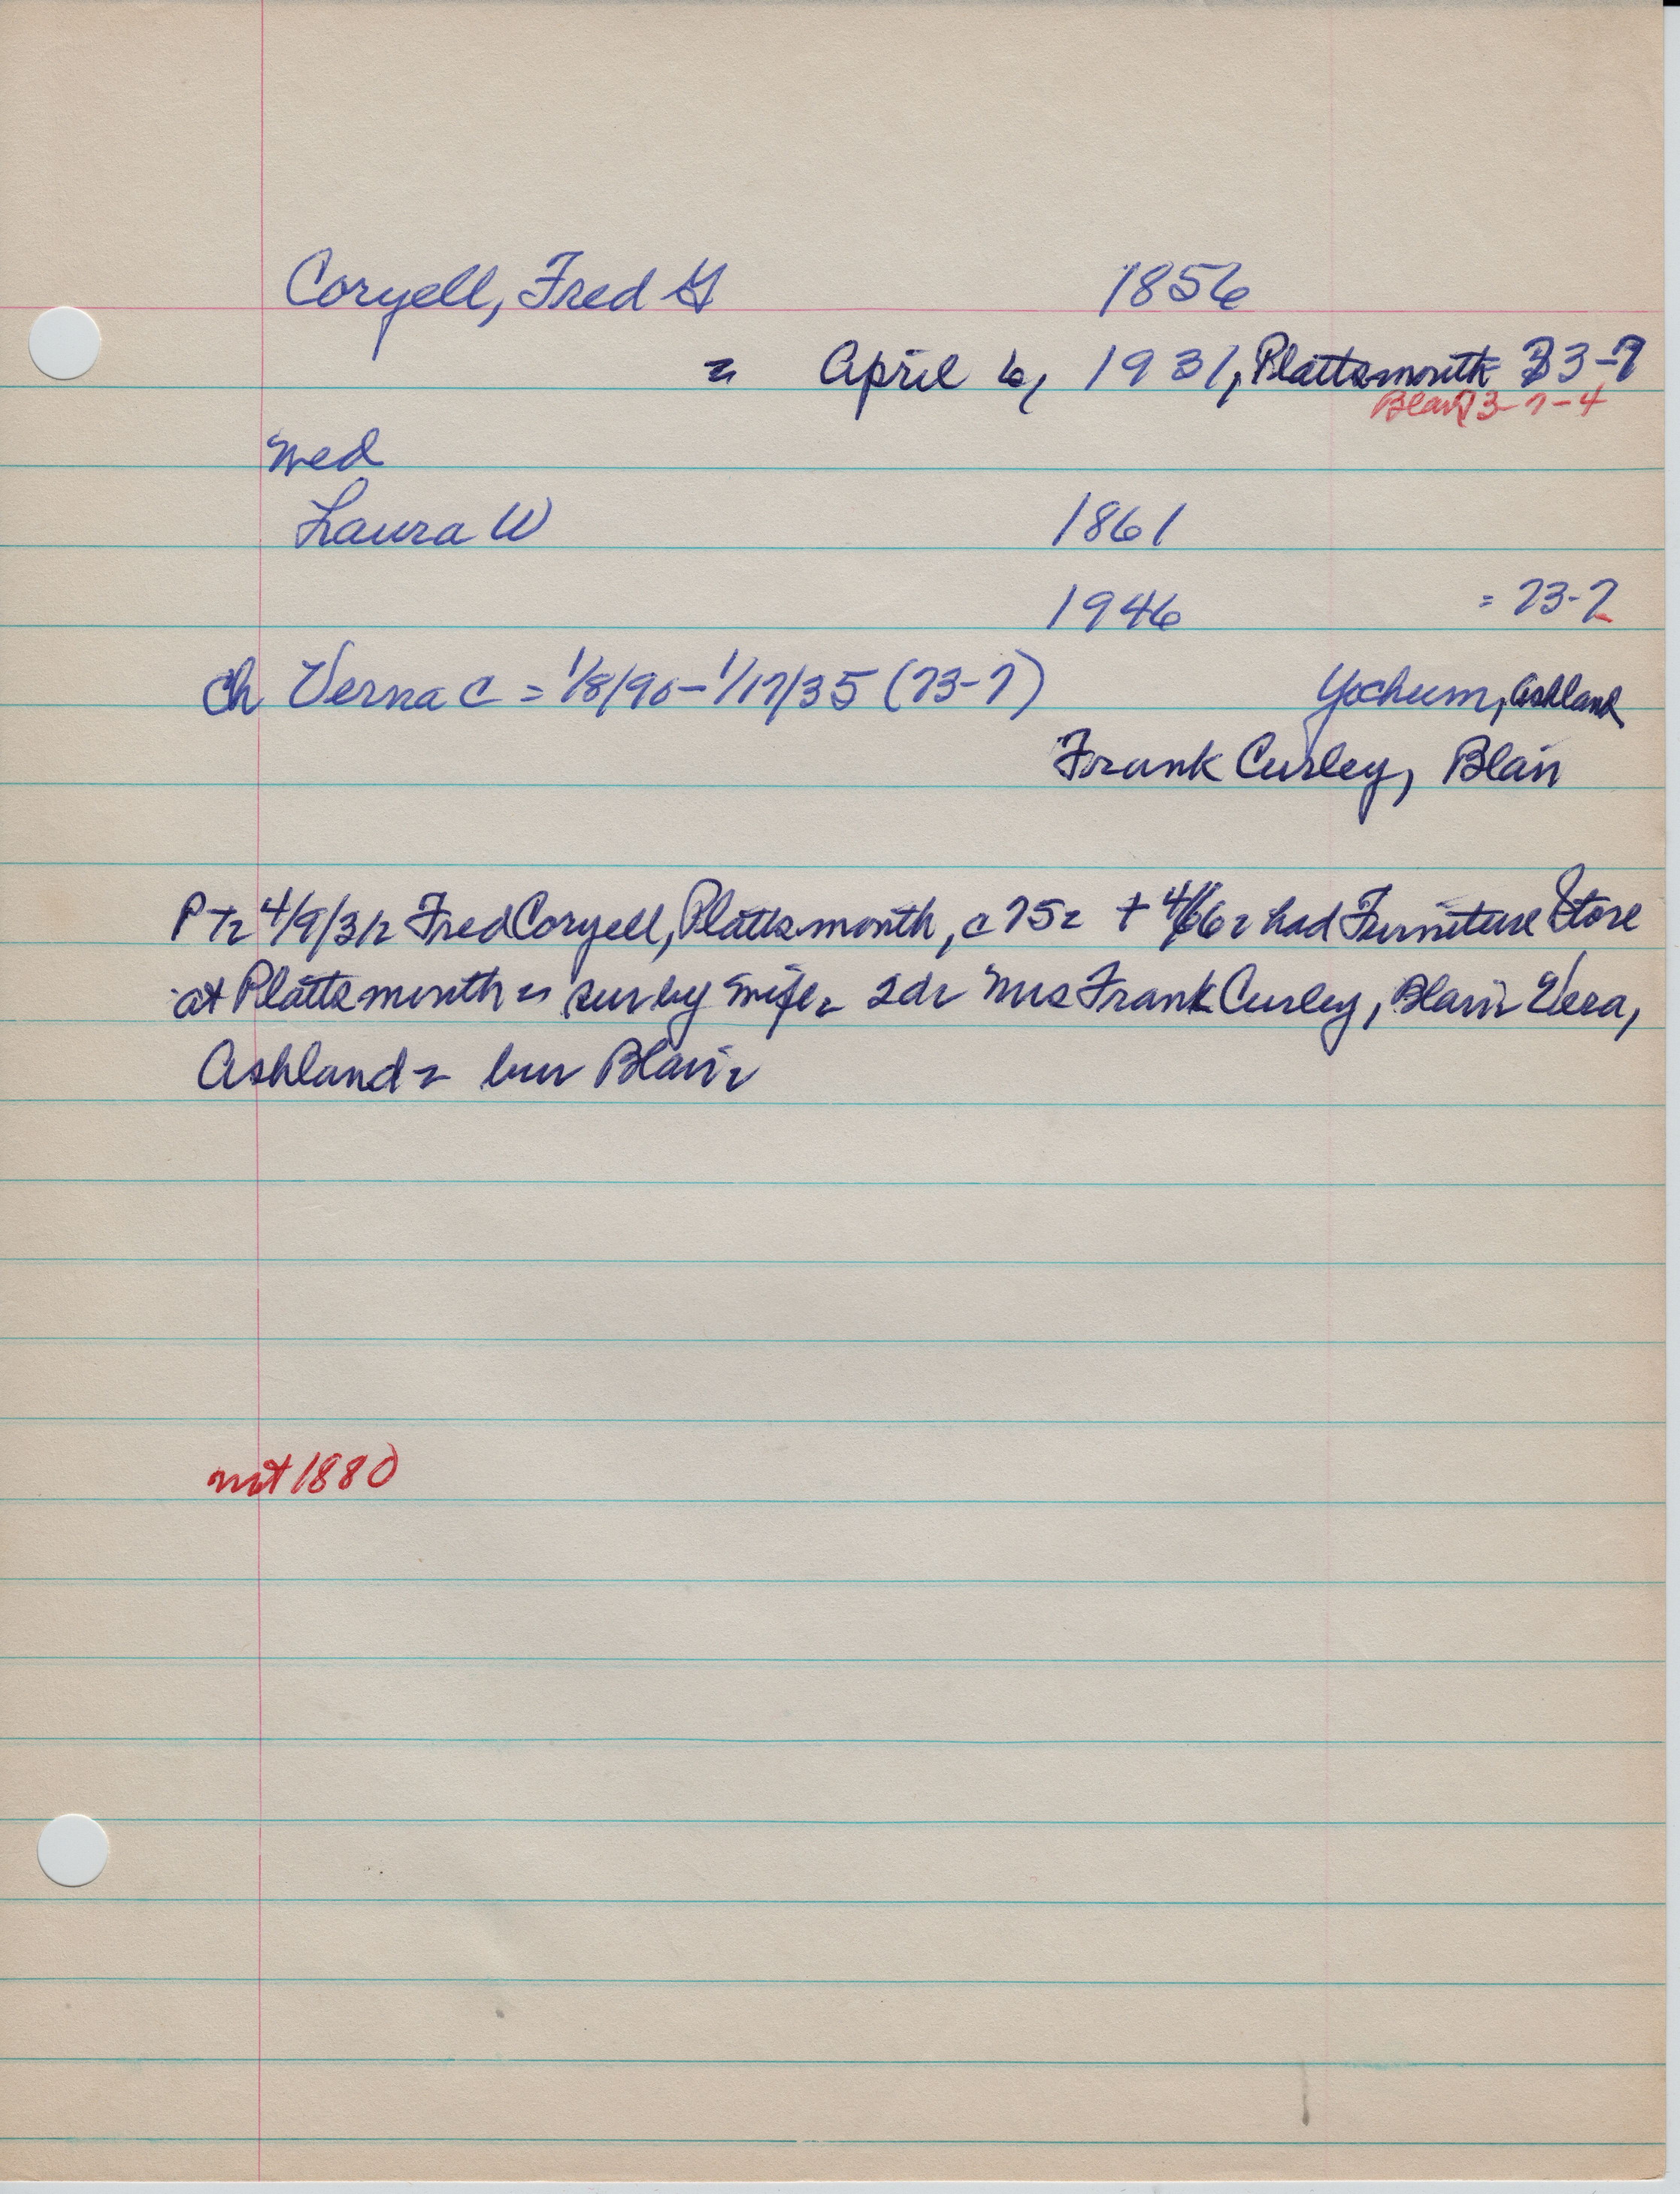 Coryell, Fred G 1856
= April 6, 1931, Plattsmouth 73-7
Blair 73-7-4
wed
Laura W 1861
1946 = 73-7
ch Verna C = 1/8/90-1/17/35 (73-7) Yochum, Ashland
Frank Curley, Blair
PT= 4/9/31= Fred Coryell, Plattsmouth, c 75= + 4/6= had Furniture Store
at Plattsmouth = sur by wife= 2d= Mrs Frank Curley, Blair= Vera,
Ashland= bur Blair=
not 1880